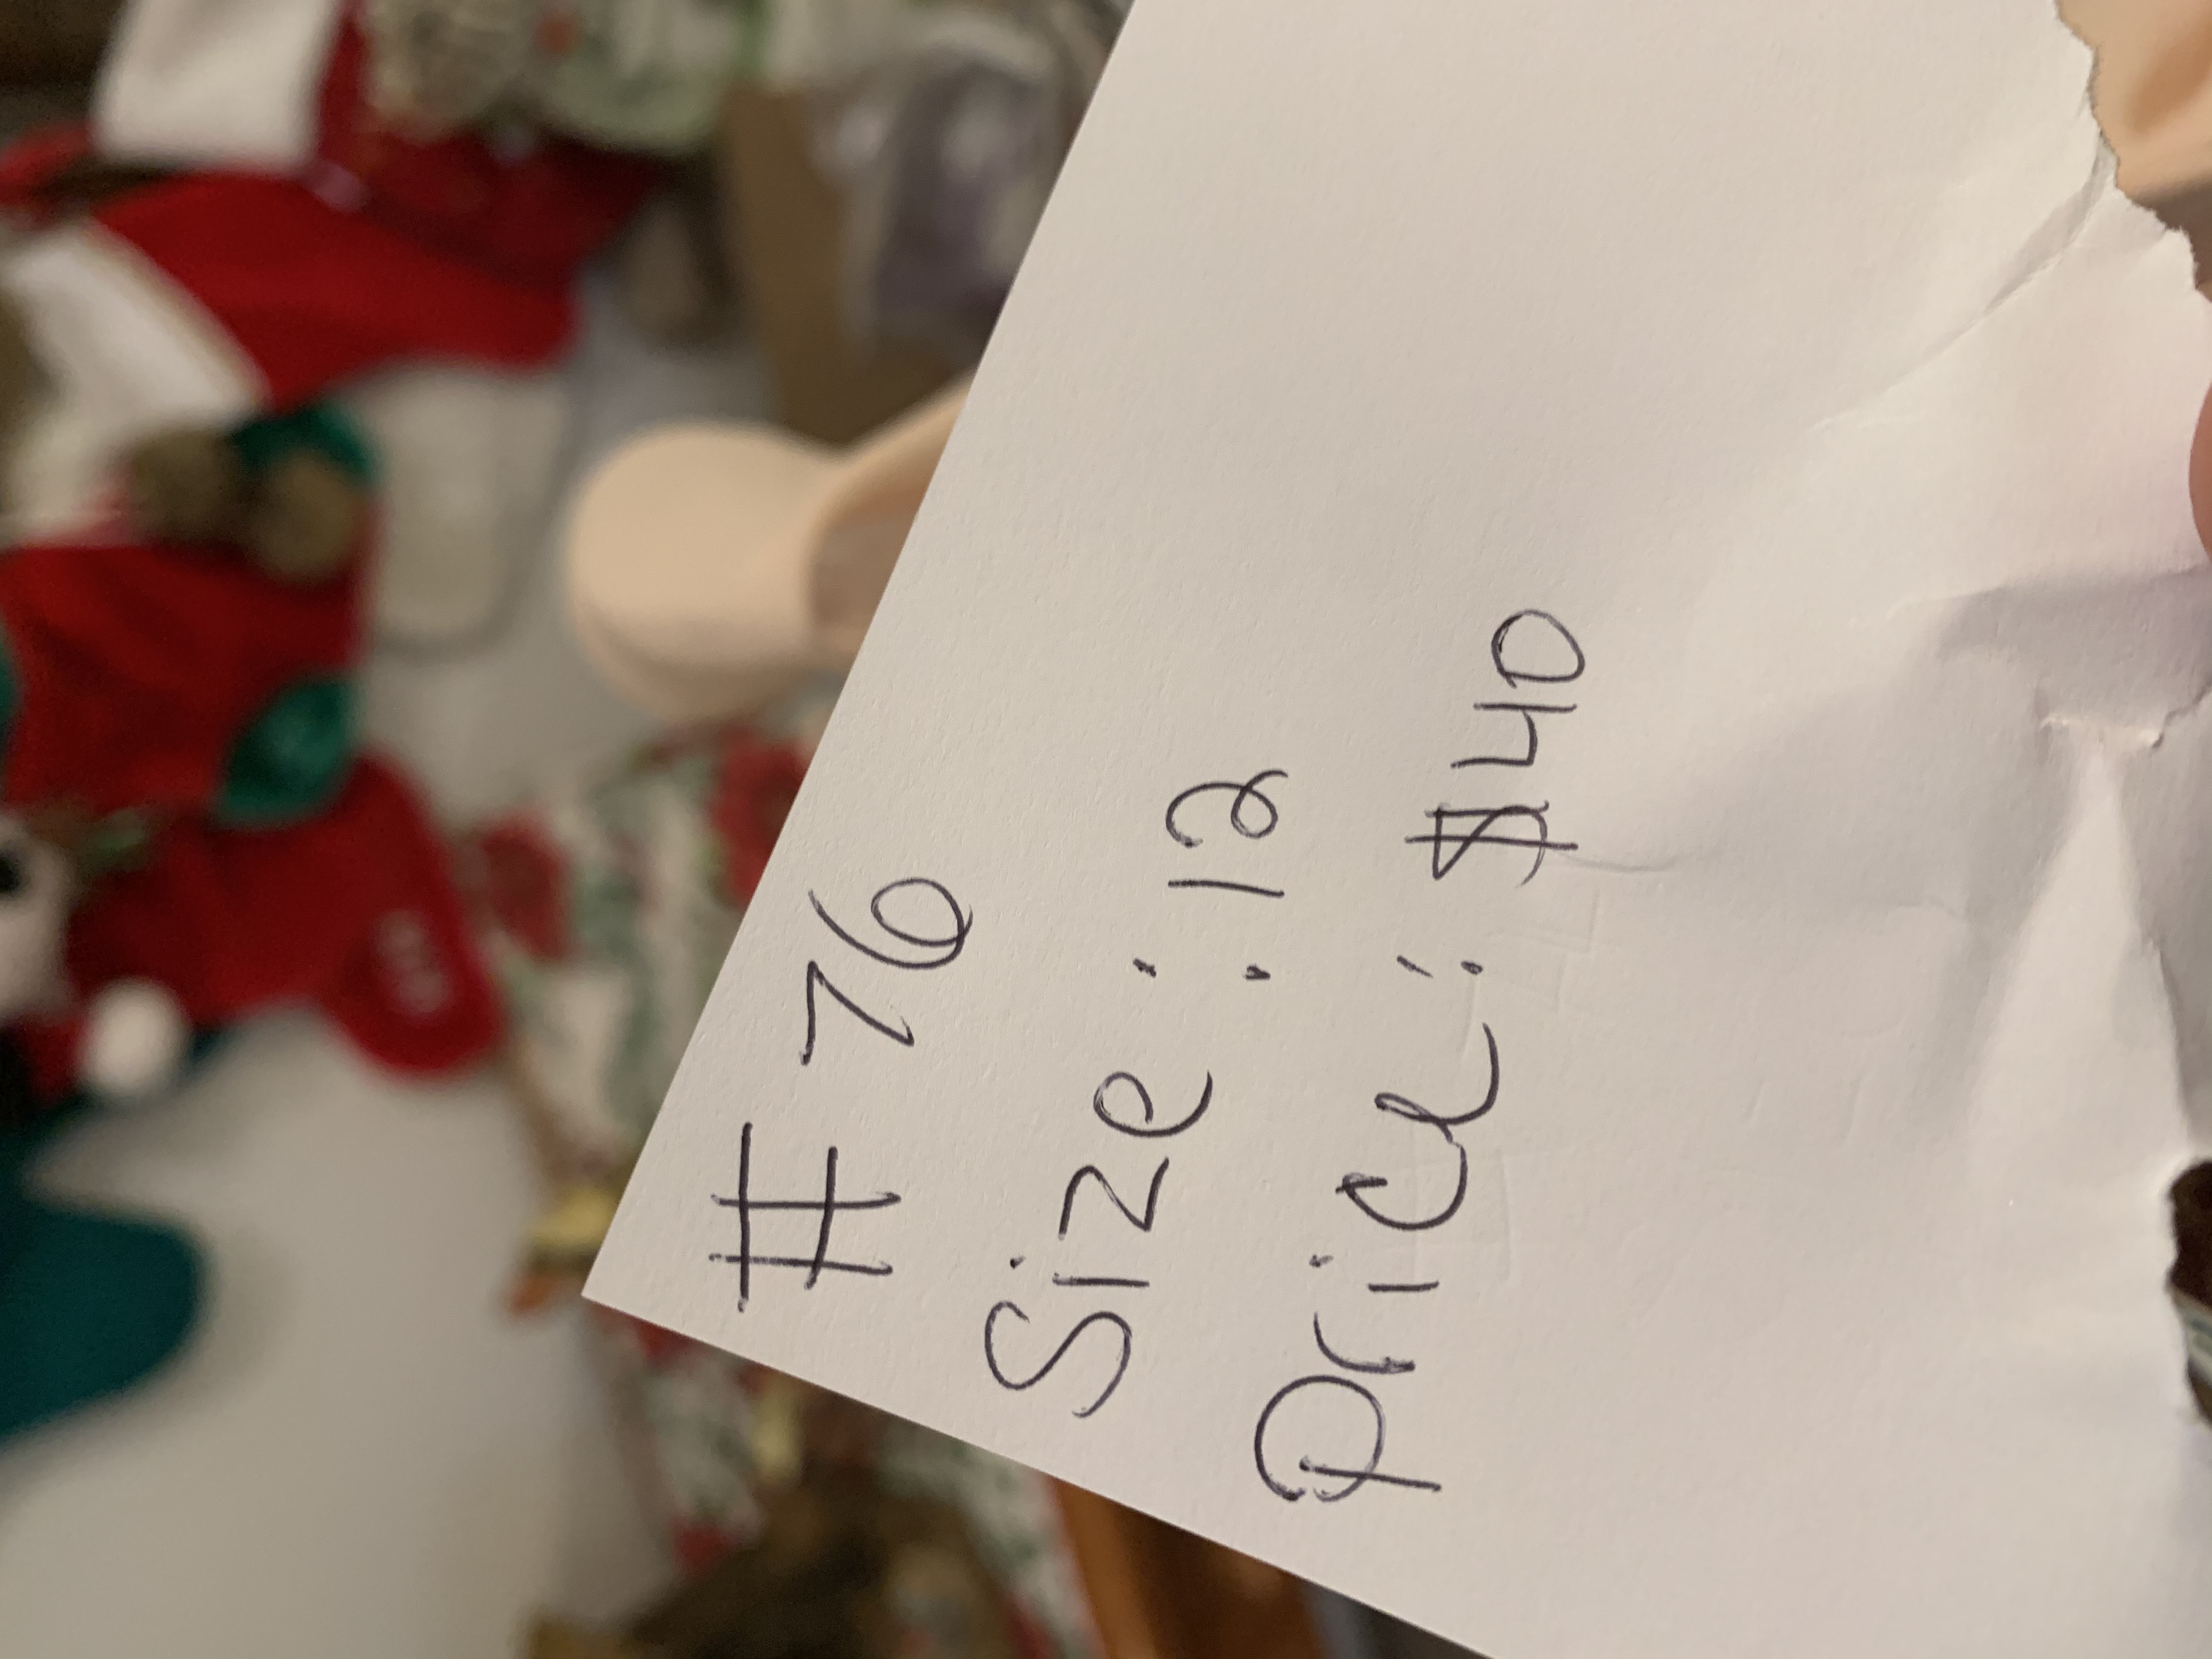 # 76
Size : 12
Price : $40